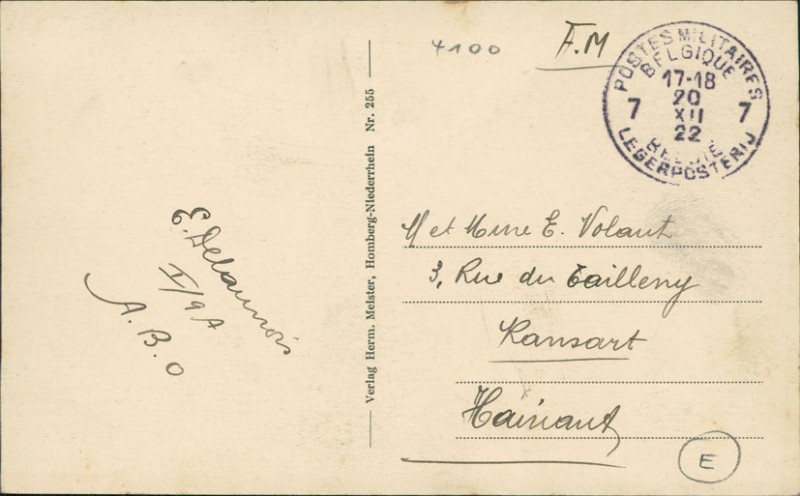 4100
F.M
POSTES MILITAIRES
BELGIQUE
17-18
20
7 XII 7
22
BELGIË
LEGERPOSTERIJ
E. Delaunois
I/9A
A.B.O
Verlag Herm. Meister, Homberg-Niederrhein Nr. 255
M et Mme E. Volant
3, Rue du Tailleny
Ransart
Hainaut
E